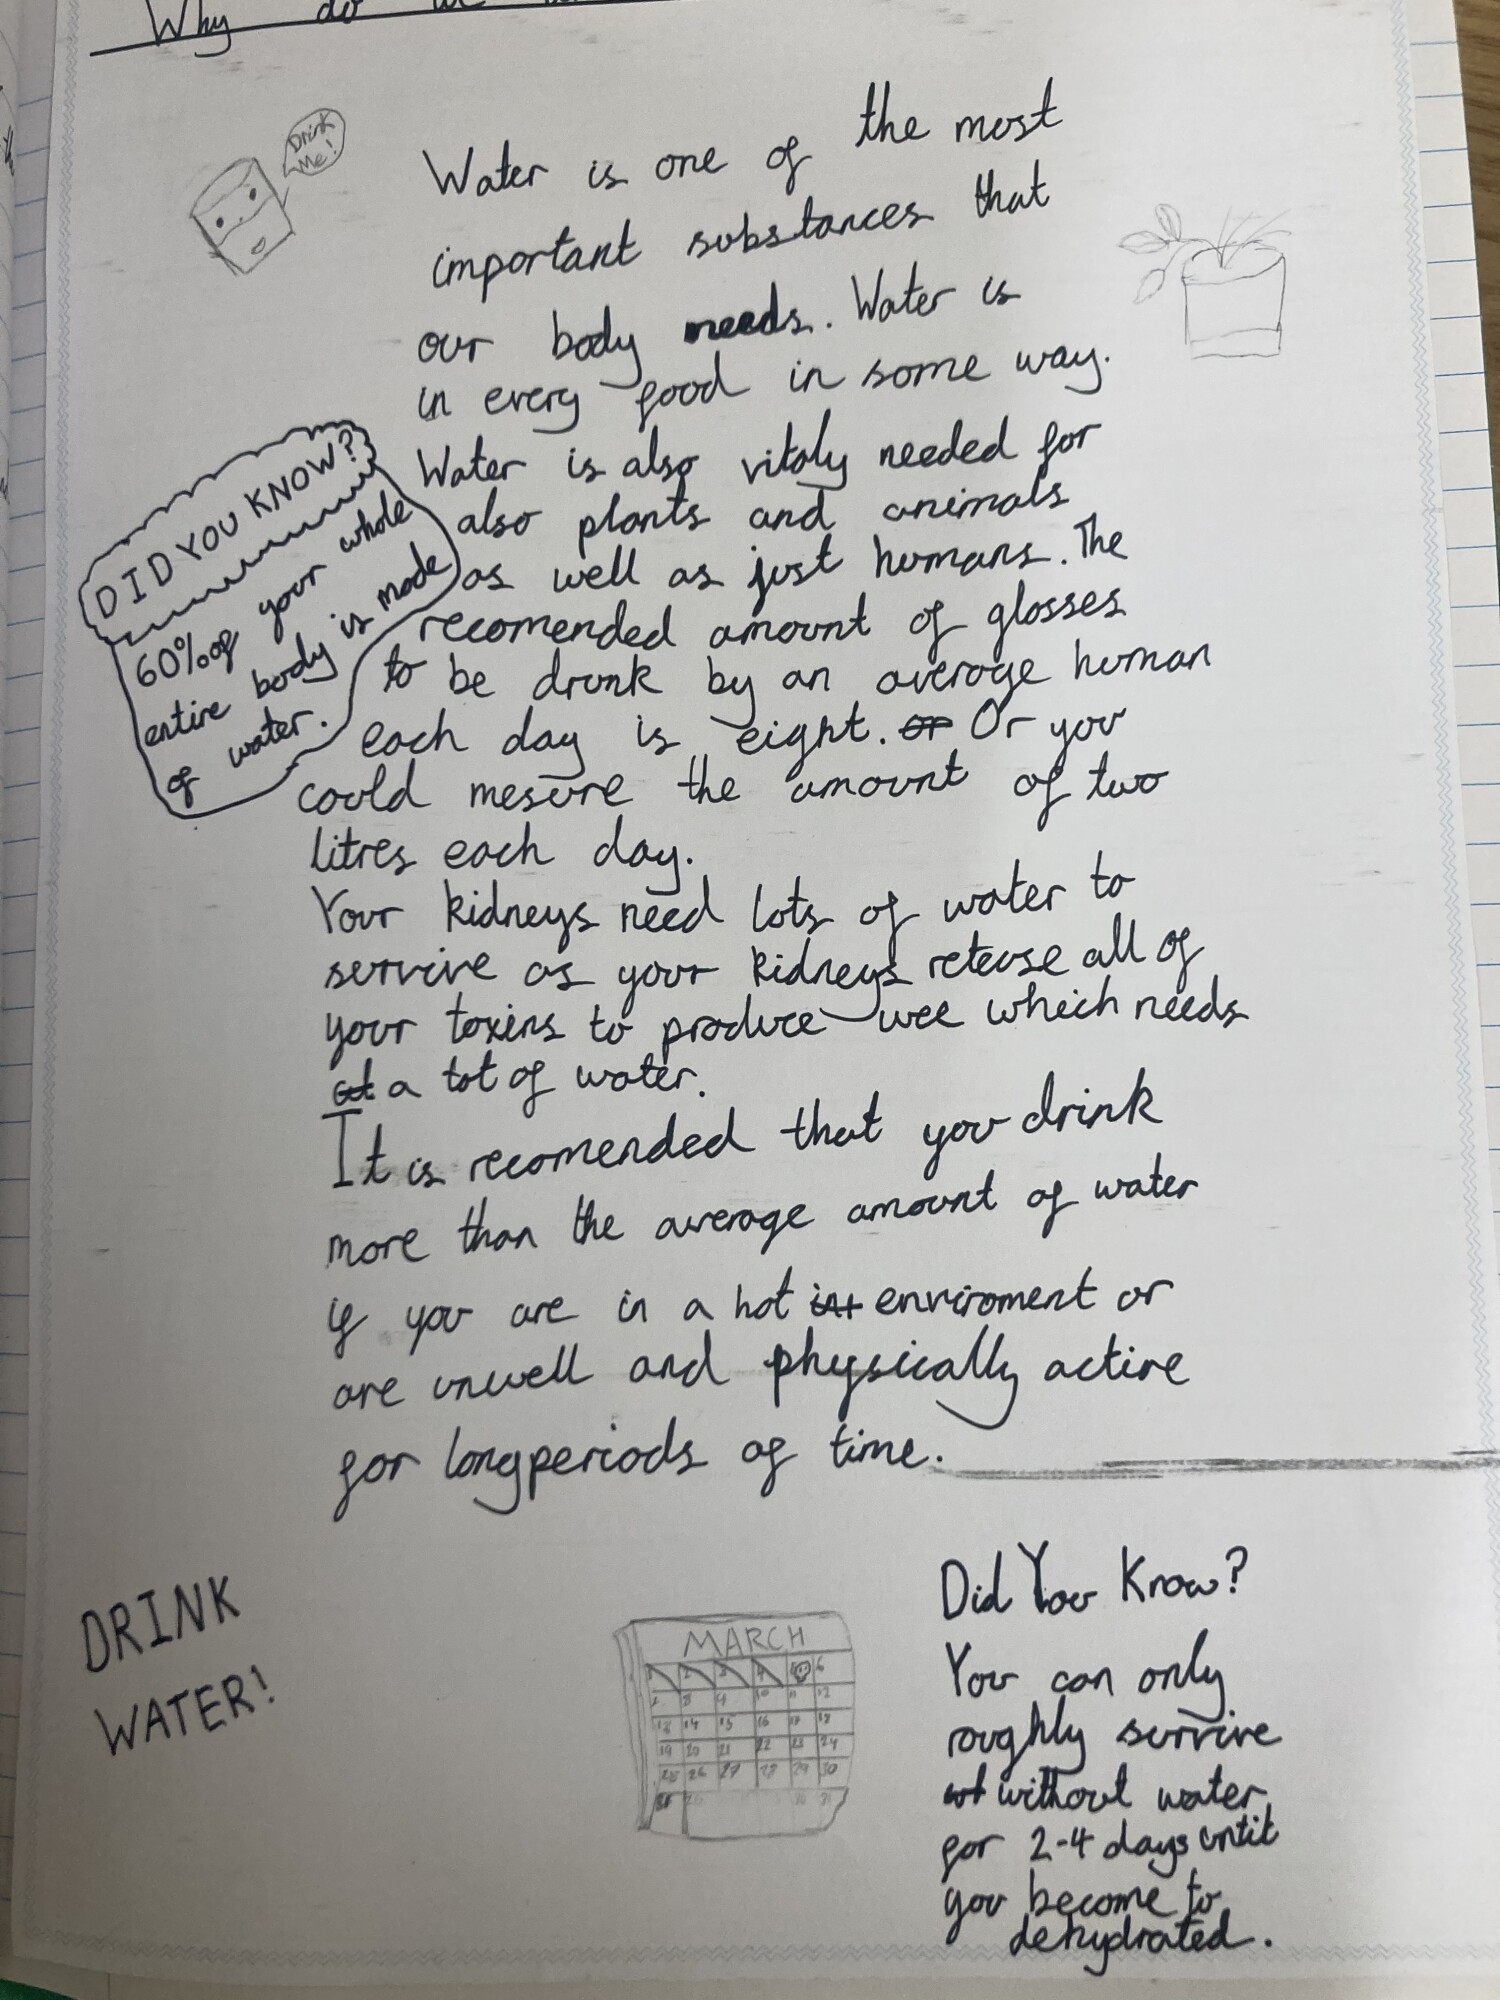 Why do we
Drink
Me!
Water is one of the most
important substances that
our body needs. Water is
in every food in some way.
Water is also vitaly needed for
also plants and animals
as well as just humans. The
recomended amount of glasses
to be drunk by an average human
each day is eight. or Or you
could mesure the amount of two
litres each day.
DID YOU KNOW?
60% of your whole
entire body is made
of water.
Your kidneys need lots of water to
survive as your kidneys release all of
your toxins to produce wee which needs
a lot of water.
It is recomended that you drink
more than the average amount of water
if you are in a hot enviroment or
are unwell and physically active
for long periods of time.
DRINK
WATER!
MARCH
1 2 3 4 6
8 9 10 11 12
13 14 15 16 17 18
19 20 21 22 23 24
25 26 27 28 29 30
31
Did You Know?
You can only
roughly survive
wt without water
for 2-4 days until
you become to
dehydrated.